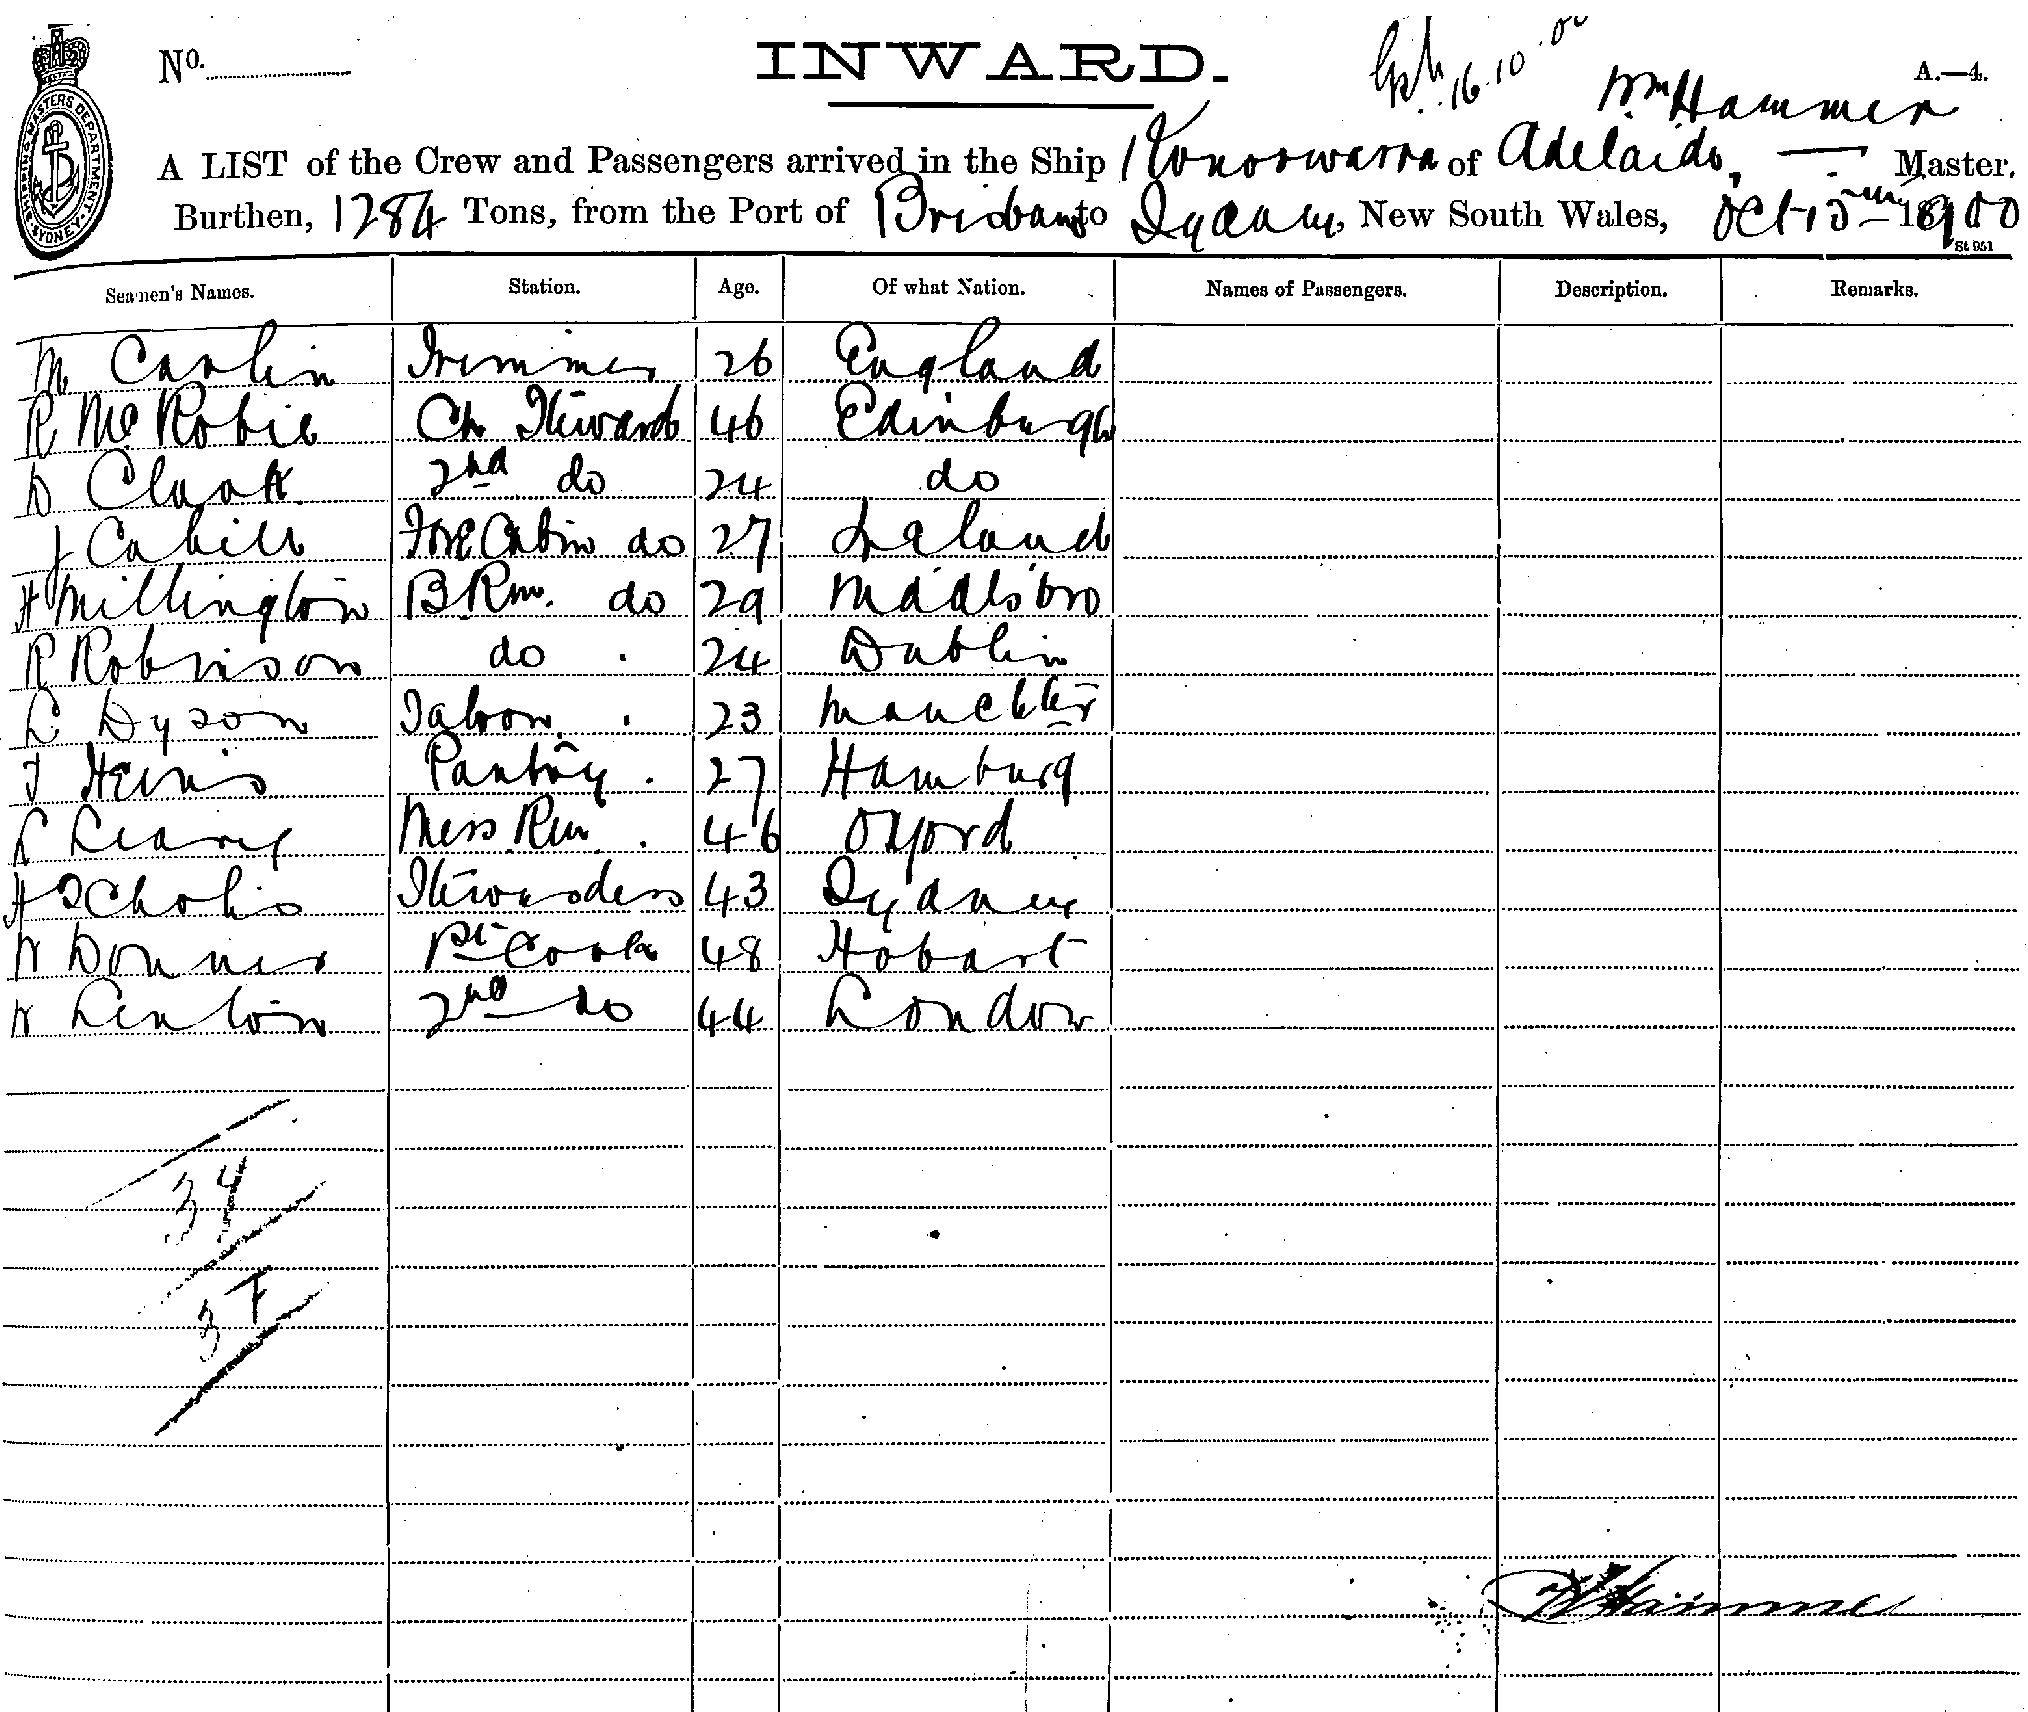 SHIPPING MASTERS DEPARTMENT. SYDNEY
No.
INWARD.
16.10.00
A.—4.
Wm Hammer
A LIST of the Crew and Passengers arrived in the Ship Konoowarra of Adelaide, — Master,
Burthen, 1284 Tons, from the Port of Brisbane to Sydney, New South Wales, Oct 15 1900
St 951
Seamen's Names. Station. Age. Of what Nation. Names of Passengers. Description. Remarks.
M Carlin Trimmer 26 England
R McRobie Ch Steward 46 Edinburgh
D Clark 2nd do 24 do
J Cahill Fore Cabin do 27 Ireland
H Millington B Rm. do 29 Middlsbro
R Robinson do . 24 Dublin
L Dyson Saloon . 23
T Heins Pantry . 27 Hamburg
L Leary Mess Rm . 46 Oxford
H Scholis Stewardess 43 Sydney
W Donner Cook 48 Hobart
W Lenton 2nd do 44 London
34
37
W Hammer